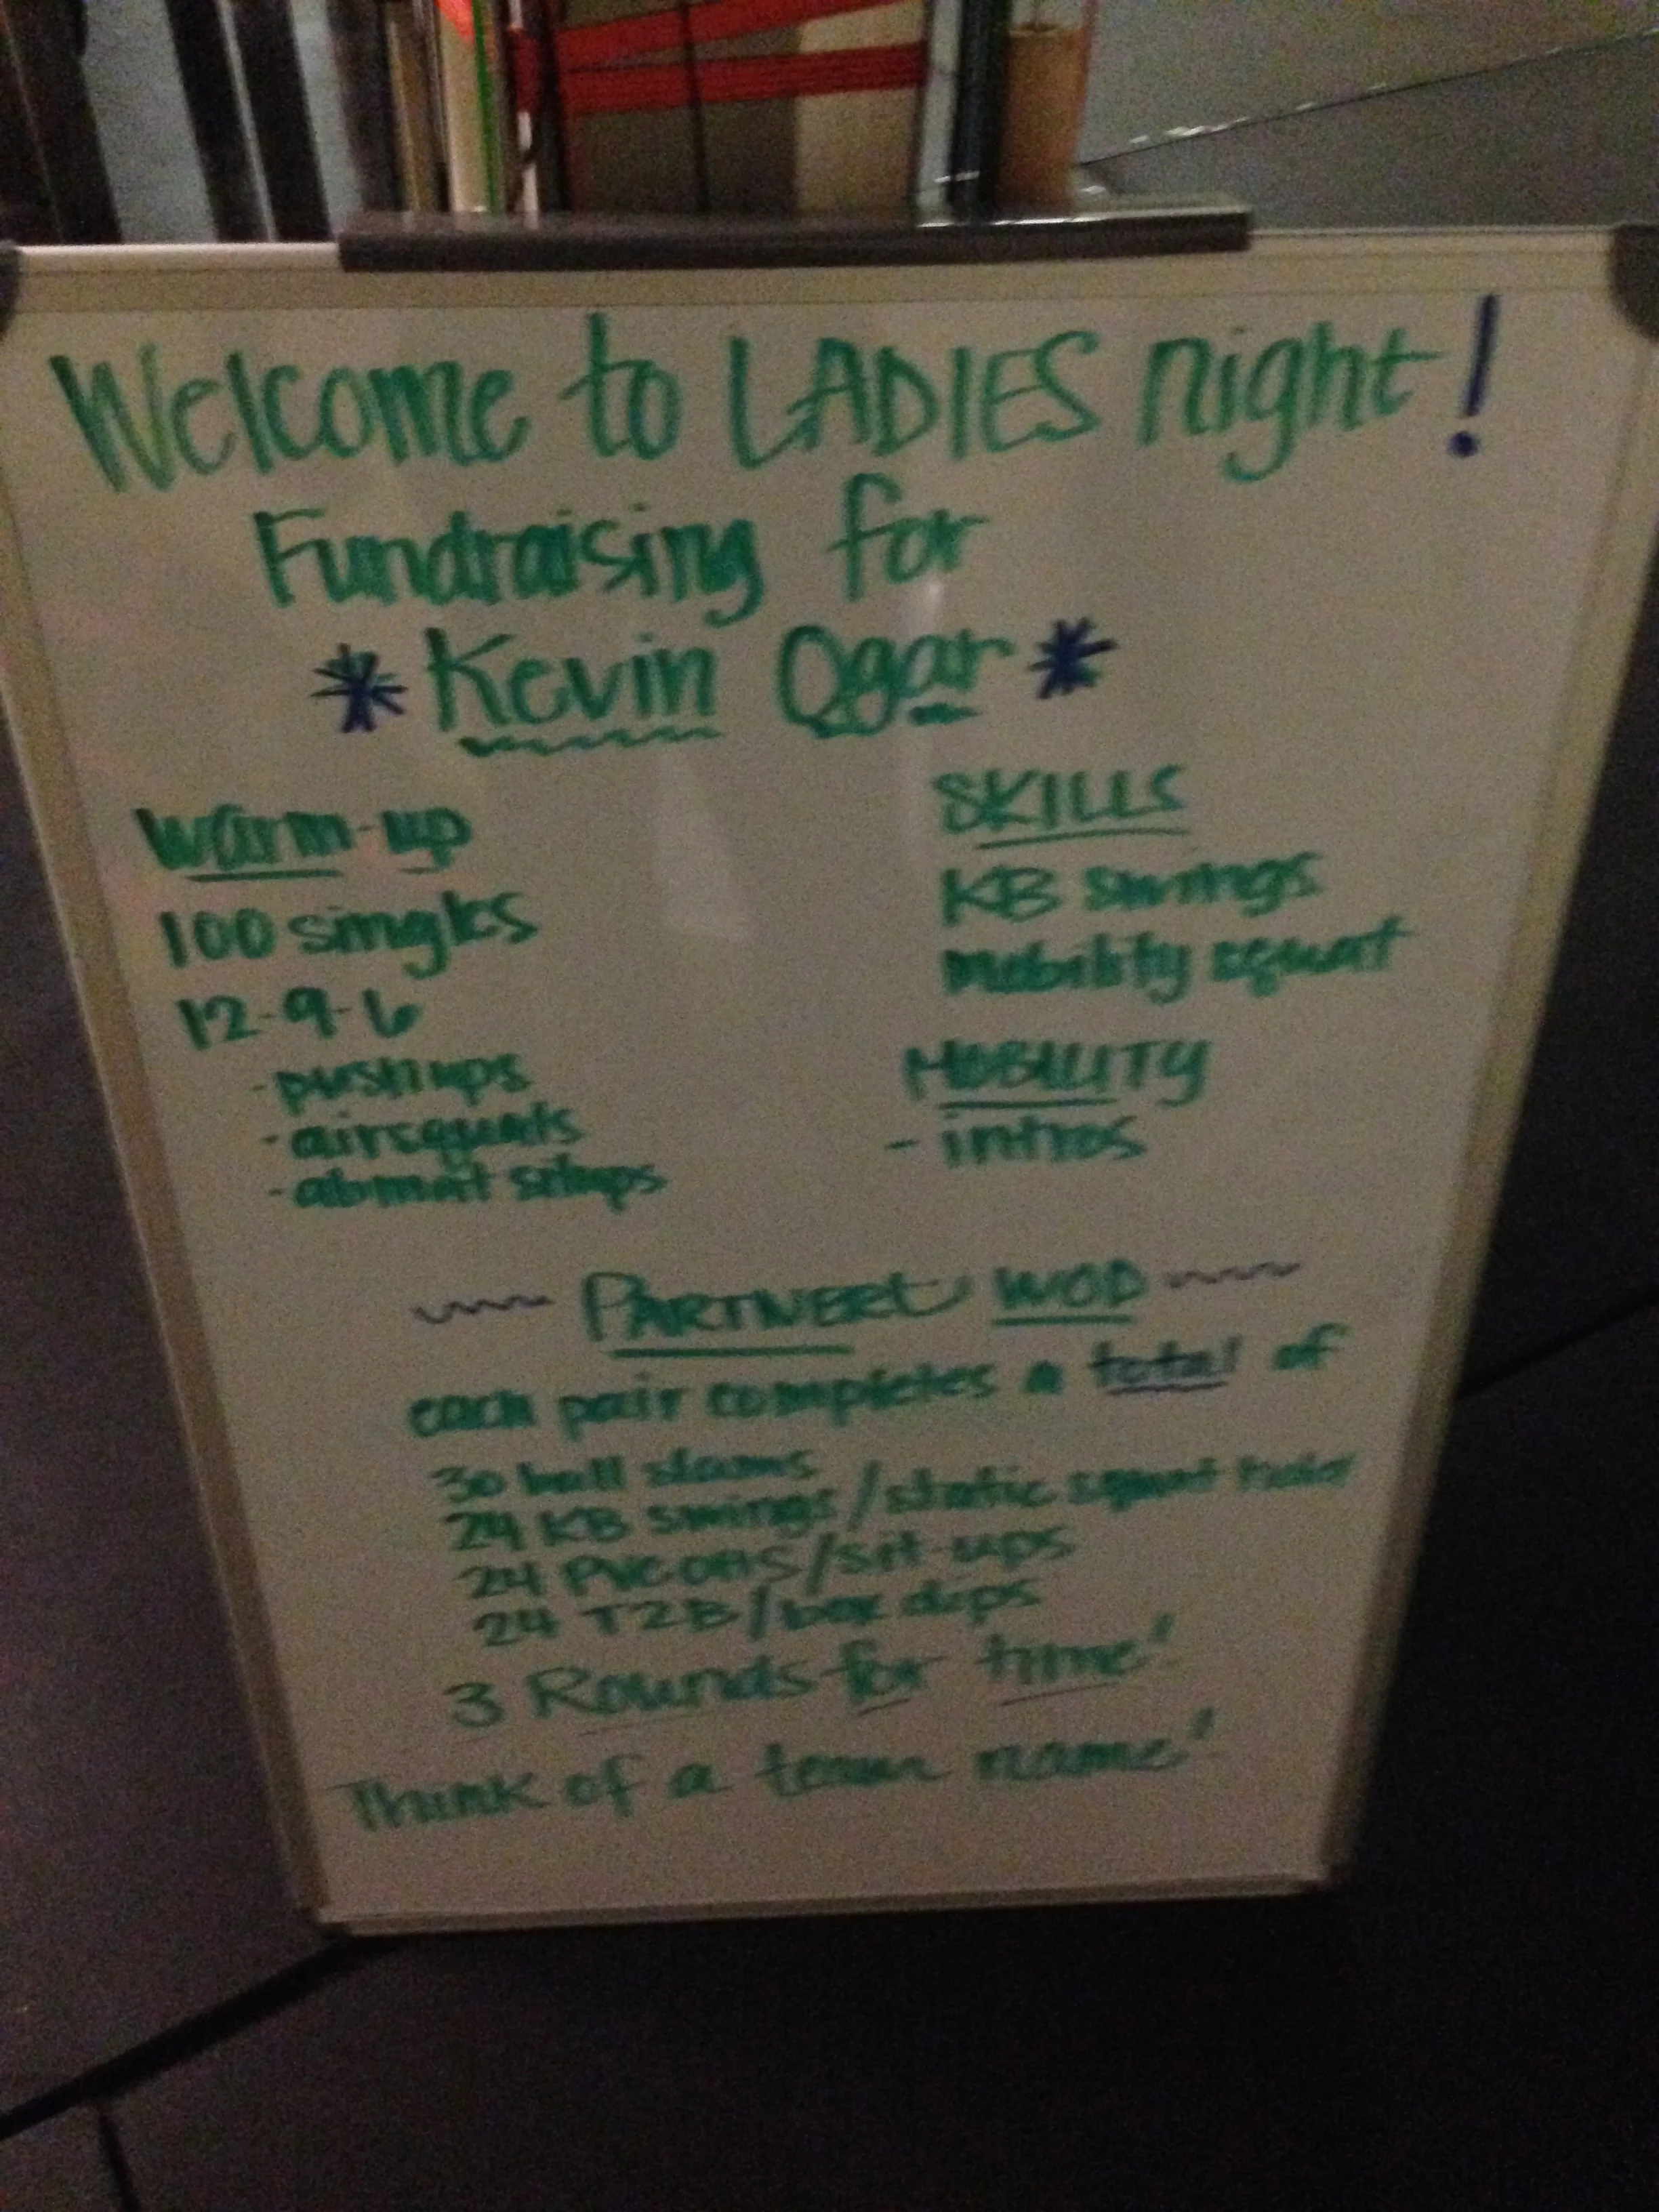 Welcome to LADIES night!
Fundraising for
* Kevin Ogar *
Warm-up
100 singles
12-9-6
- pushups
- airsquats
- abmat situps
SKILLS
KB swings
mobility squat
MOBILITY
- intros
~~~ PARTNER WOD ~~~
each pair completes a total of
30 ball slams
24 KB swings/static squat holder
24 PVC OHS/sit-ups
24 T2B/box dips
3 Rounds for time!
Think of a team name!